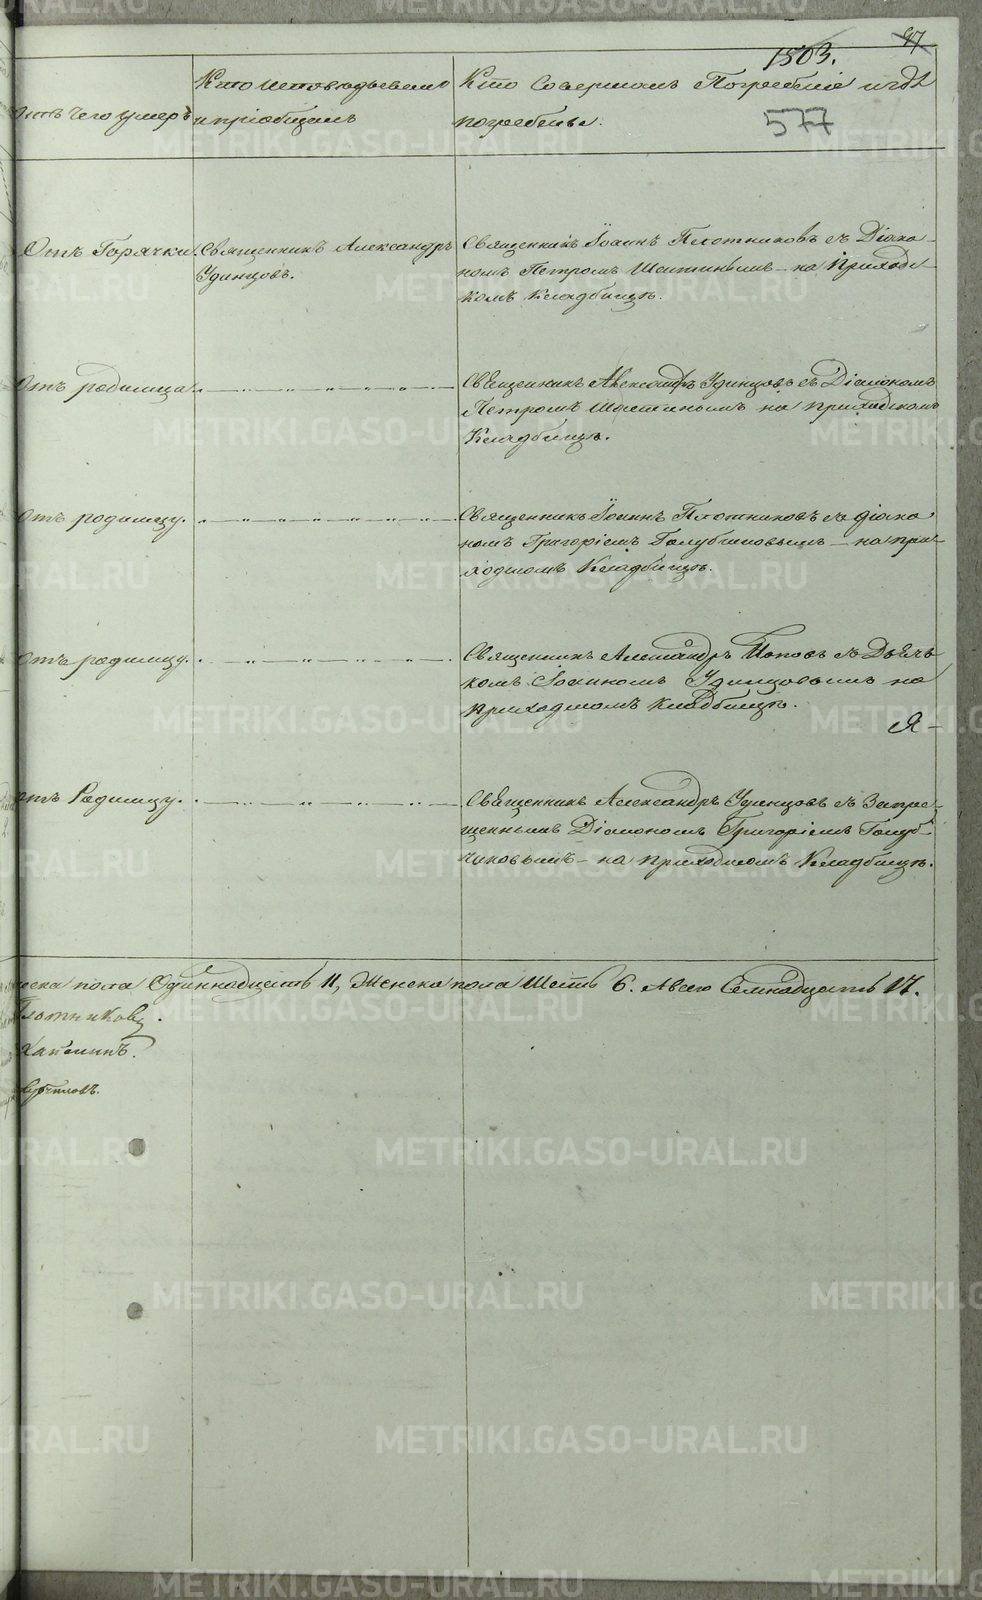 97
1503.
577
Отъ чего умеръ
Кто исповѣдывалъ
и пріобщалъ
Кто совершалъ Погребеніе и гдѣ
погребены.
Отъ Горячки.
Священникъ Александръ
Удинцовъ.
Священникъ Іоаннъ Плотниковъ съ Діако-
номъ Петромъ на Приход-
комъ Кладбищѣ.
Отъ родимца
Священникъ Александръ Удинцовъ съ Діакономъ
Петромъ на приходскомъ
Кладбищѣ.
Отъ родимцу.
Священникъ Іоаннъ Плотниковъ съ діако-
номъ Григоріемъ Голубчиковымъ на при-
ходскомъ Кладбищѣ.
Отъ родимцу.
Священникъ Александръ Поповъ съ Дьяч-
комъ Іоанномъ Удинцовымъ на
приходскомъ кладбищѣ.
Я-
Отъ Родимцу.
Священникъ Александръ Удинцовъ съ Запре-
щеннымъ Діакономъ Григоріемъ Голуб-
чиковымъ на приходскомъ Кладбищѣ.
еска пола Одиннадцать 11, Женска пола Шесть 6. А всего Семнадцать 17.
Плотниковъ.
METRIKI.GASO-URAL.RU